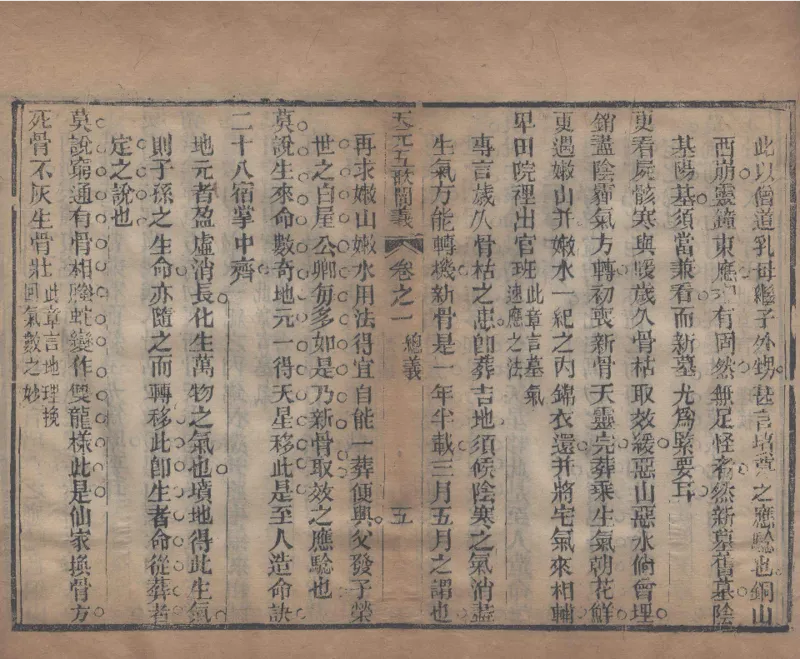 此以僧道乳母繼子外甥甚言塋之應騐也銅山
西崩靈鐘東應有固然無足怪者然新墓舊墓陰
基陽基須當兼看而新墓尤爲緊要耳
更看屍骸寒與暖歲久骨枯取效緩惡山惡水倘曾埋
銷盡陰霾氣方轉初喪新骨天靈完葬乘生氣朝花鮮
更遇嫩山并嫩水一紀之內錦衣還并將宅氣來相輔
卑田院裡出官班此章言墓氣速應之法
專言歲久骨枯之患卽葬吉地須候陰寒之氣消盡
生氣方能轉機新骨是一年半載三月五月之謂也
天元五歌闡義 卷之一 總義 五
再求嫩山嫩水用法得宜自能一葬便興父發子榮
世之白屋公卿每多如是乃新骨取效之應騐也
莫說生來命數奇地元一得天星移此是至人造命訣
二十八宿掌中齊
地元者盈虛消長化生萬物之氣也墳地得此生氣
則子孫之生命亦隨之而轉移此卽生者命從葬者
定之說也
莫說窮通有骨相螣蛇變作雙龍樣此是仙家換骨方
死骨不灰生骨壯此章言地理挽回氣數之妙